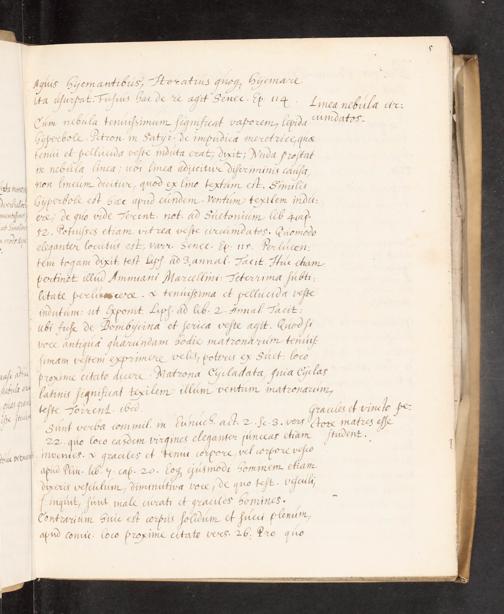 5
Hyemantibus, Horatius quoq, hyemare
ita usurpat. Fusius hac de re agit Senec. Ep. 114.
Linea nebula cir:
cumdatos.
Cum nebula tenuissimum significat vaporem, lepida
hyperbole. Petron. in Satyr. de impudica meretrice, quæ
tenui et pellucida veste induta erat, dixit; Nuda prostat
in nebula linea; vox linea adjicitur discriminis causa,
non lineum dicitur, quod ex lino textum est. Similis
hyperbole est hæc apud eundem. Ventum textilem indu:
de quo vide Torent. not. ad Suetonium lib. 4. cap.
52. Potuisset etiam vitrea veste circumdatos. Quomodo
eleganter locutus est. Varr. Senec. Ep. 115. Perlucen:
tem togam dixit test. Lips. ad 3. annal. Tacit. Huc etiam
pertinet illud Ammiani Marcellini: Teterrima subti:
litate & tenuissima et pellucida veste
indutum: ut exponit Lips. ad lib. 2. Annal. Tacit:
ubi fuse de Bombycina et serica veste agit. Quod si
voce antiqua quarundam hodie matronarum tenuis
simam vestem exprimere velis, poteris ex Suet. loco
proxime citato dicere. Matrona Cycladata, quia Cyclas
latinis significat textilem illum ventum matronarum,
teste Torrent. ibid.
Graciles et vincto pe:
ctore matres esse
student.
Sunt verba commil. in Eunuch. act. 2. Sc. 3. vers.
22. quo loco easdem virgines eleganter junceas etiam
invenies. & graciles et tenui corpore, vel corpore vesco
apud Plin. lib. 7. cap. 20. Eoq ejusmodi hominem etiam
dixeris vesculum, diminutiva voce, de quo test. vesculi,
inquit, sunt male curati et graciles homines.
Contrarium huic est corpus solidum et succi plenum,
apud comic. loco proxime citato vers. 26. Pro quo